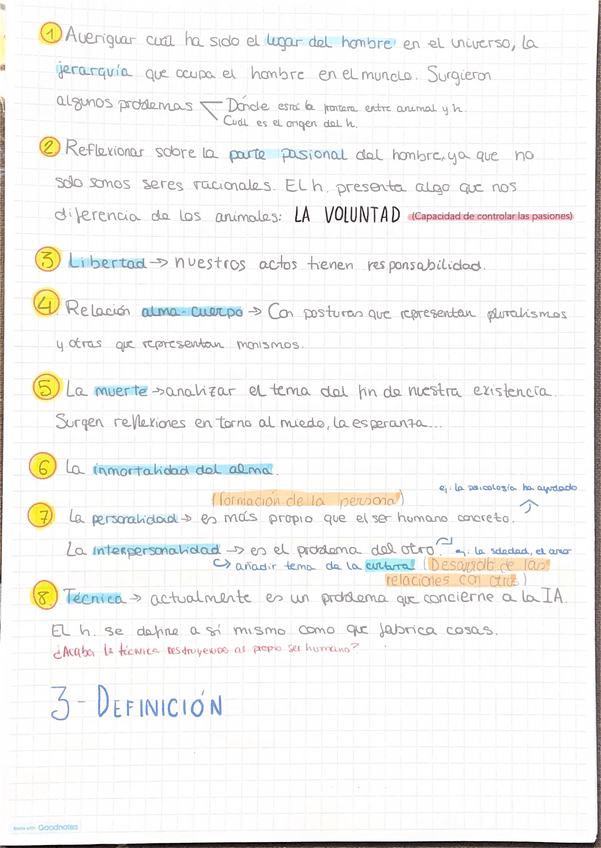 1 Averiguar cuál ha sido el lugar del hombre en el universo, la
jerarquía que ocupa el hombre en el mundo. Surgieron
algunos problemas
Dónde está la frontera entre animal y h.
Cuál es el origen del h.
2 Reflexionar sobre la parte pasional del hombre, ya que no
solo somos seres racionales. El h. presenta algo que nos
diferencia de los animales: LA VOLUNTAD (Capacidad de controlar las pasiones)
3 Libertad → nuestros actos tienen responsabilidad.
4 Relación alma-cuerpo → Con posturas que representan pluralismos
y otras que representan monismos.
5 La muerte → analizar el tema del fin de nuestra existencia.
Surgen reflexiones en torno al miedo, la esperanza...
6 La inmortalidad del alma.
ej: la psicología ha ayudado
(formación de la persona)
7 La personalidad → es más propio que el ser humano concreto.
La interpersonalidad → es el problema del otro. ej: la soledad, el amor
añadir tema de la cultura (Desarrollo de las
relaciones con otros)
8 Técnica → actualmente es un problema que concierne a la IA.
El h. se define a sí mismo como que fabrica cosas.
¿Acaba la técnica destruyendo al propio ser humano?
3- DEFINICIÓN
Made with Goodnotes